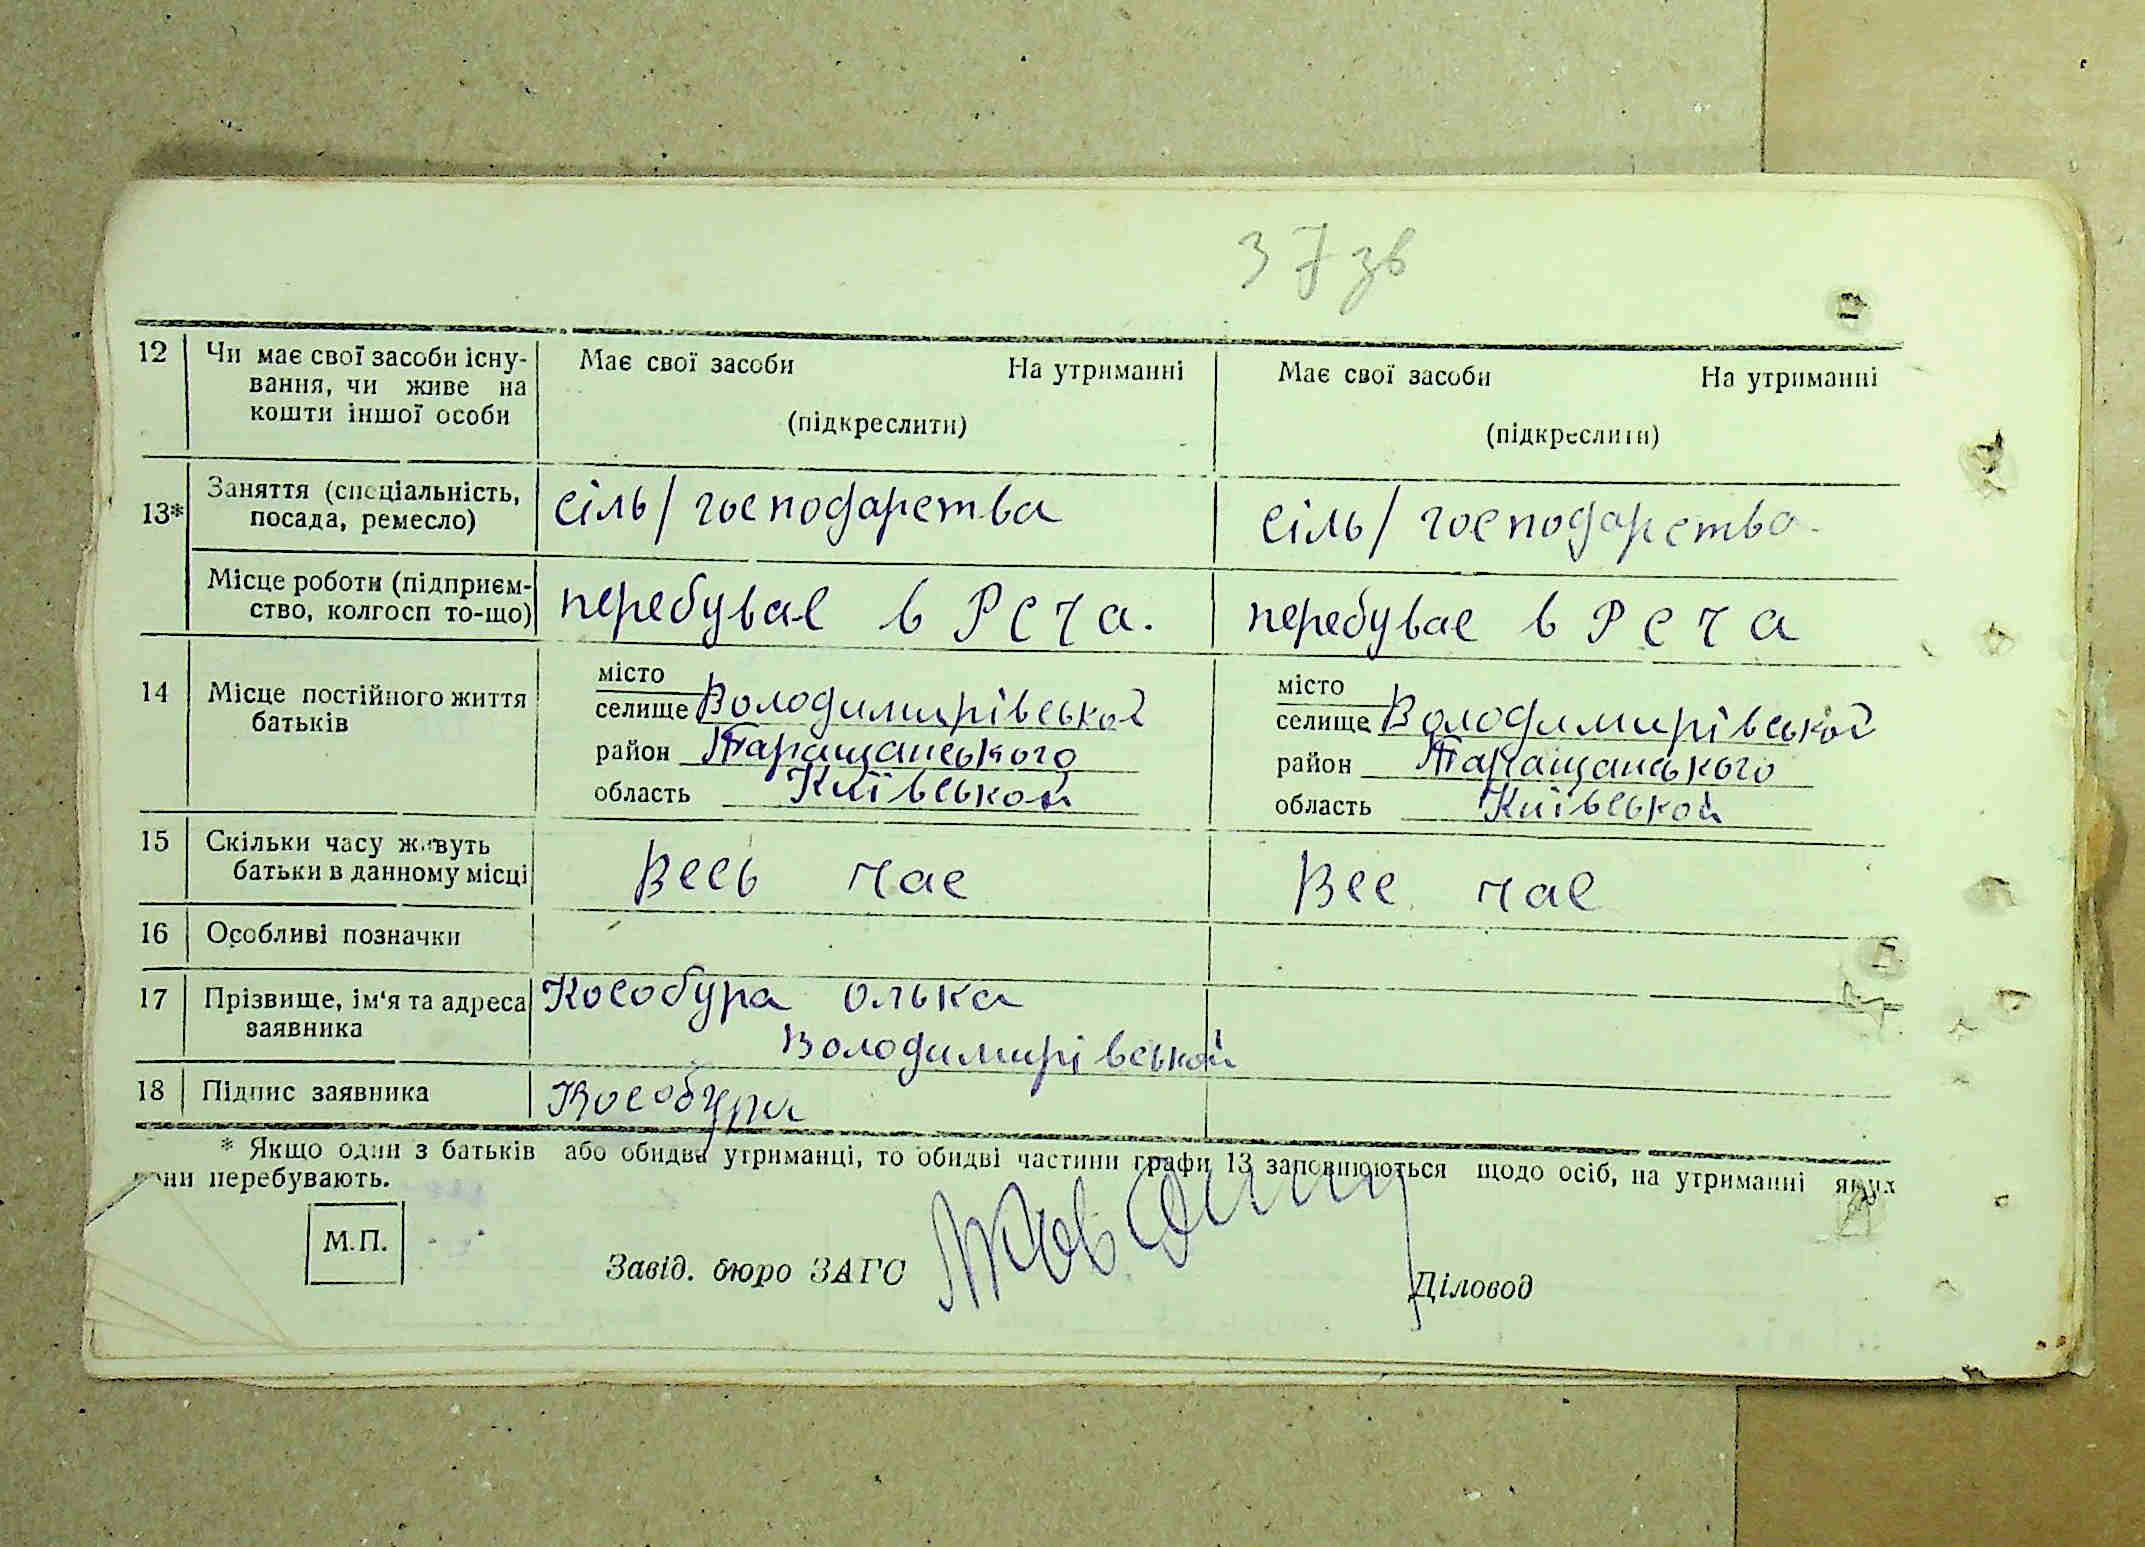 37 зв
12 Чи має свої засоби існу-
вання, чи живе на
кошти іншої особи
Має свої засоби На утриманні
(підкреслити)
Має свої засоби На утриманні
(підкреслити)
13* Заняття (спеціальність,
посада, ремесло)
сіль/ господарства
сіль/ господарства
Місце роботи (підприєм-
ство, колгосп то-що)
перебуває в Р С Ч А.
перебуває в Р С Ч А
14 Місце постійного життя
батьків
місто
селище Володимирівської
район Таращанського
область Київської
місто
селище Володимирівської
район Таращанського
область Київської
15 Скільки часу живуть
батьки в данному місці
Весь час
Вес час
16 Особливі позначки
17 Прізвище, ім'я та адреса
заявника
Кособура олька
Володимирівської
18 Підпис заявника
Кособура
* Якщо один з батьків або обидва утриманці, то обидві частини графи 13 заповнюються щодо осіб, на утриманні яких
вони перебувають.
М.П.
Завід. бюро ЗАГС
Діловод